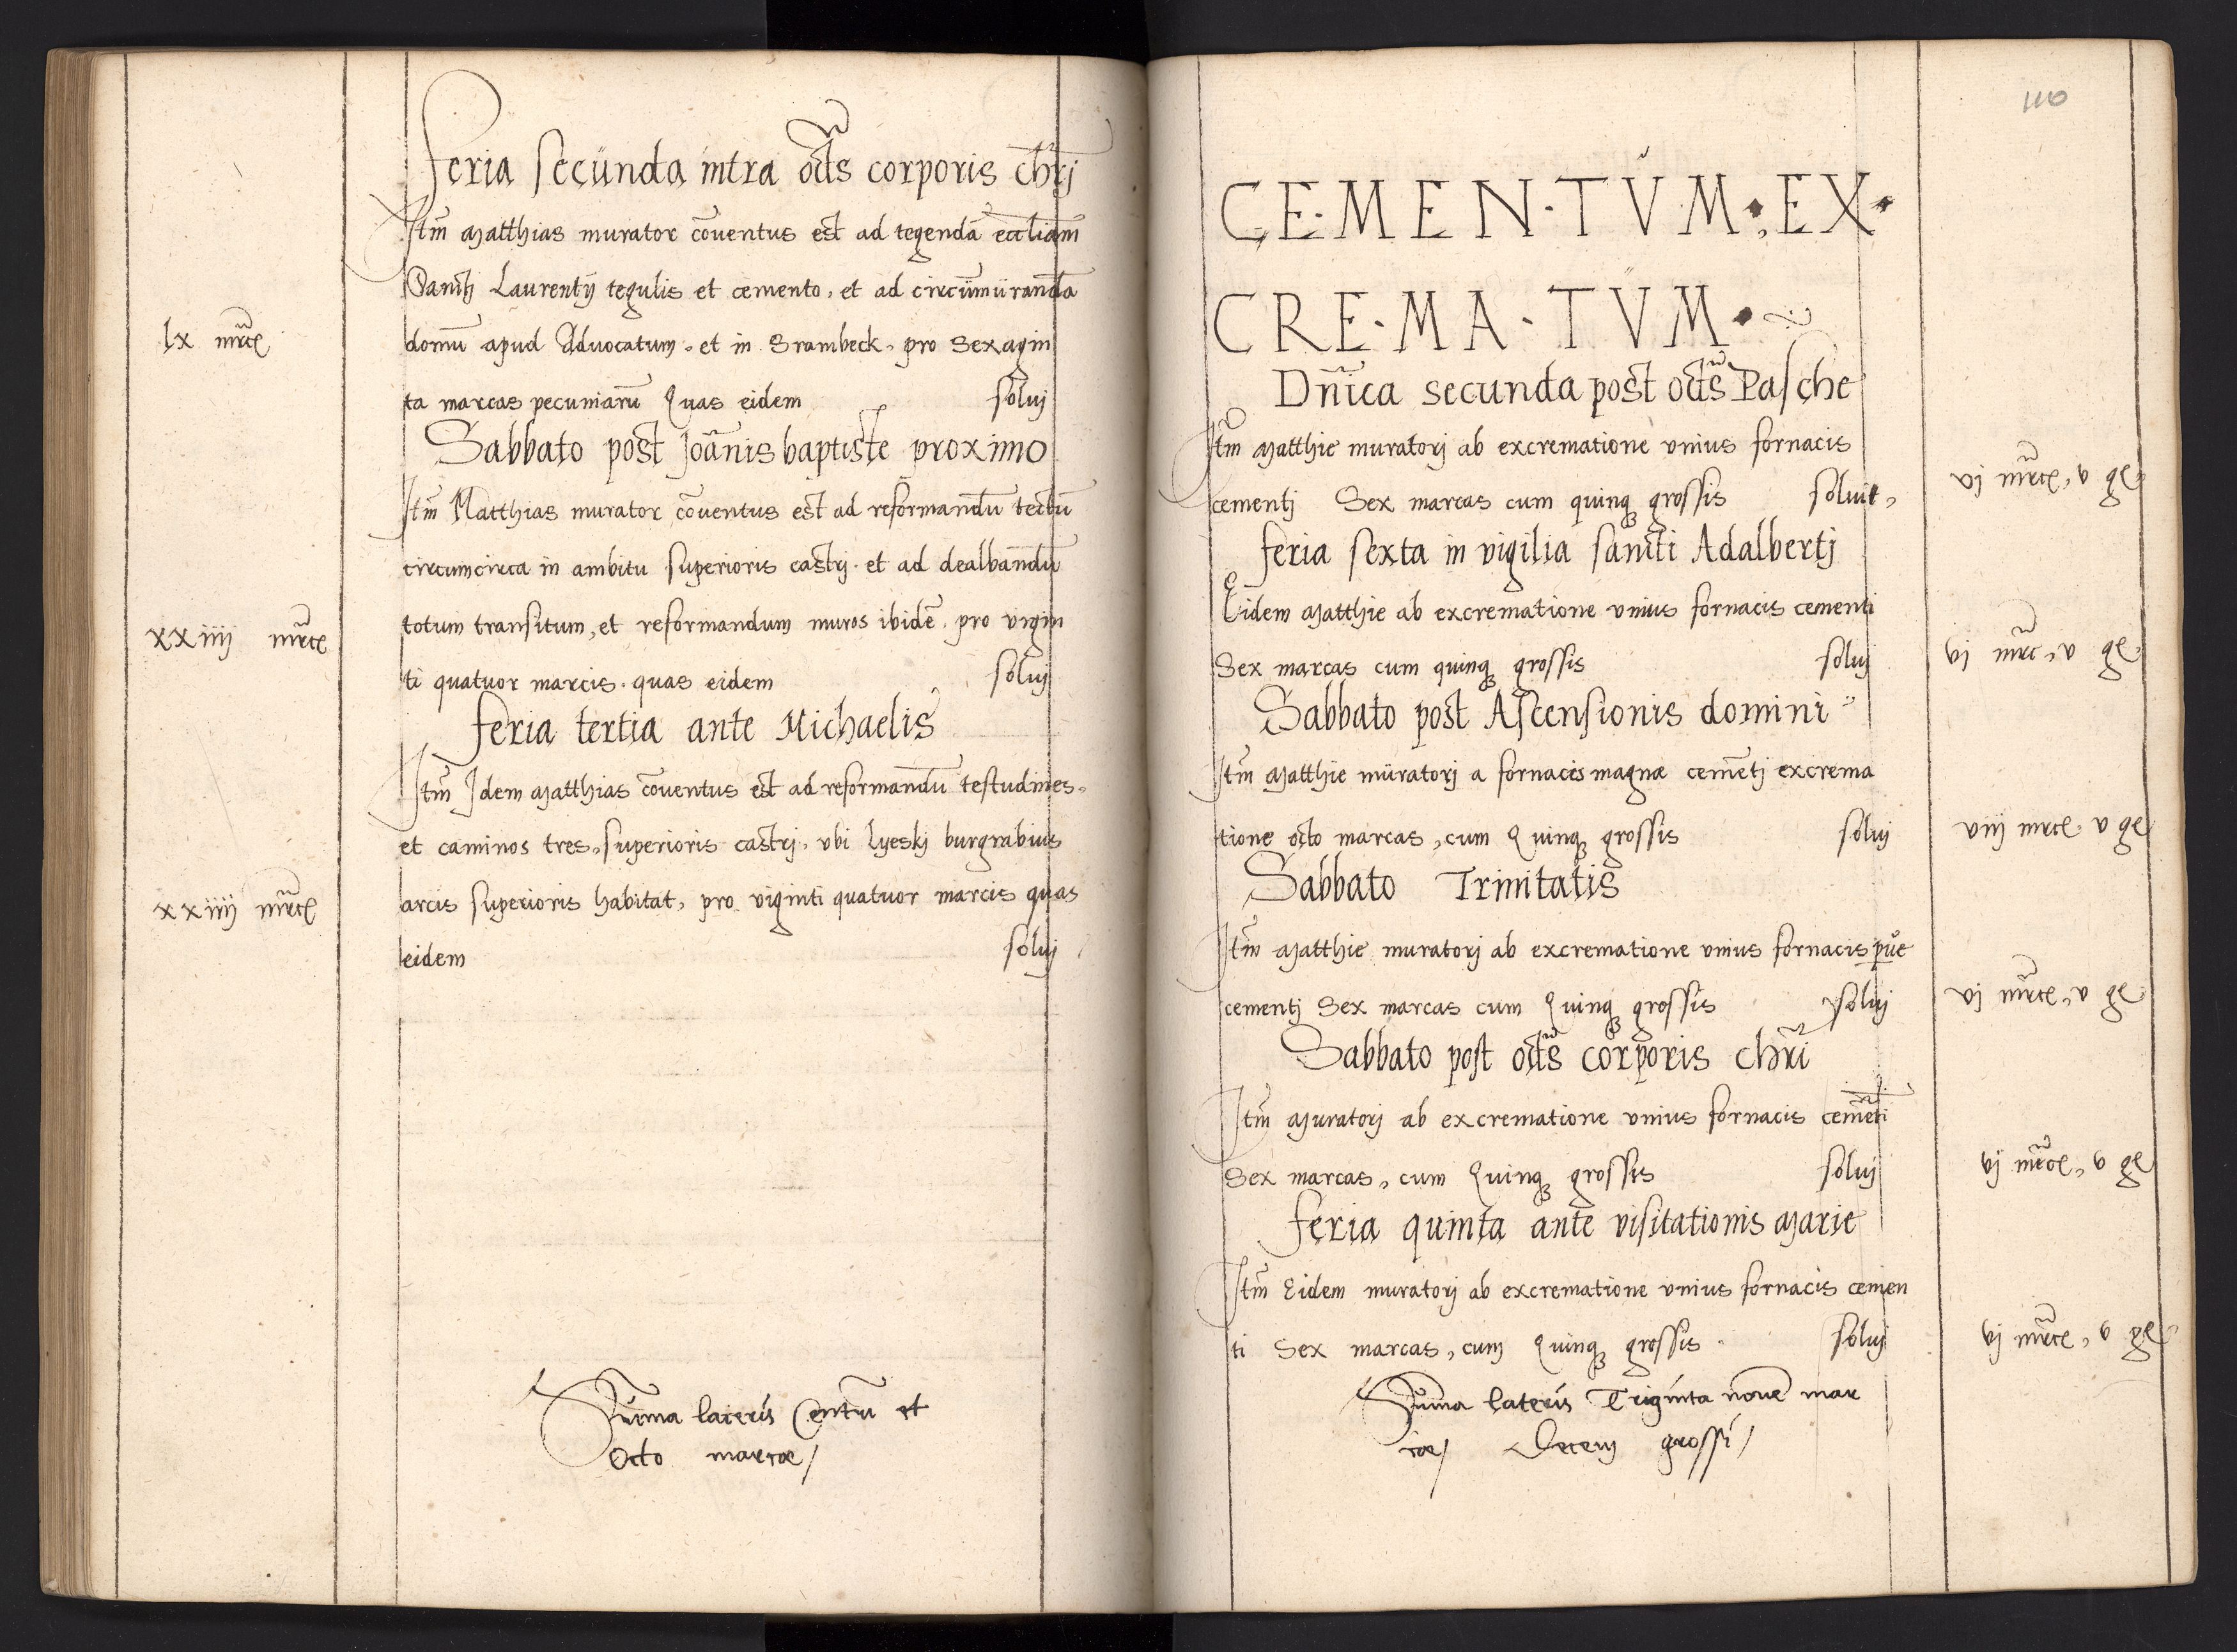 Feria secünda intra octs corporis chrj
Itm Matthias murator cōuentus est ad tegendā eccliam
Sanctj Laurentij tegulis et cemento, et ad circümüranda
lx mrce
domū apud Aduocatum, et in Srambeck, pro Sexagin
ta marcas pecuniarū Quas eidem soluj
Sabbato post Joānis baptiste proximo
Itm Matthias murator cōuentus est ad reformandū tectū
circumcirca in ambitu superioris castrj. et ad dealbandū
xxiiij mrce
totum transitum, et reformandum muros ibidē pro vigin
ti quatuor marcis. quas eidem soluj
Feria tertia ante Michaelis
Itm Idem Matthias cōuentus est ad reformandū testudines,
et caminos tres, superioris castrj, vbi Lyeskj burgrabius
xxiiij mrce
arcis superioris habitat, pro viginti quatuor marcis quas
eidem soluj
Sūma lateris Centū et
Octo marcae/
110
CE·MEN·TV̆M·EX·
CRE·MA·TVM·
Dnica secunda post octs Pasche
Itm Matthie muratorj ab excrematione vnius fornacis
cementj Sex marcas cum quinqȝ grossis soluit,
vj mrce, v ge
feria sexta in vigilia sancti Adalbertj
Eidem Matthie ab excrematione vnius fornacis cementi
Sex marcas cum quinqȝ grossis soluj
vj mrc, v ge
Sabbato post Ascensionis domini
Itm Matthie müratorj a fornacis magnae cemētj excrema
tione octo marcas, cum Quinqȝ grossis soluj
viij mrce v ge
Sabbato Trinitatis
Itm Matthie muratorj ab excrematione vnius fornacis pūe
cementj Sex marcas cum Quinqȝ grossis soluj
vj mrce, v ge
Sabbato post octs corporis chri
Itm Muratorj ab excrematione vnius fornacis cemēti
Sex marcas, cum Quinqȝ grossis soluj
vj mrce, v ge
Feria quinta ante visitationis Marie
Itm Eidem muratorj ab excrematione vnius fornacis cemen
ti Sex marcas, cum Quinqȝ grossis soluj
vj mrce, v ge
Sūma lateris Triginta nouē mar
cae/ Decem grossi/